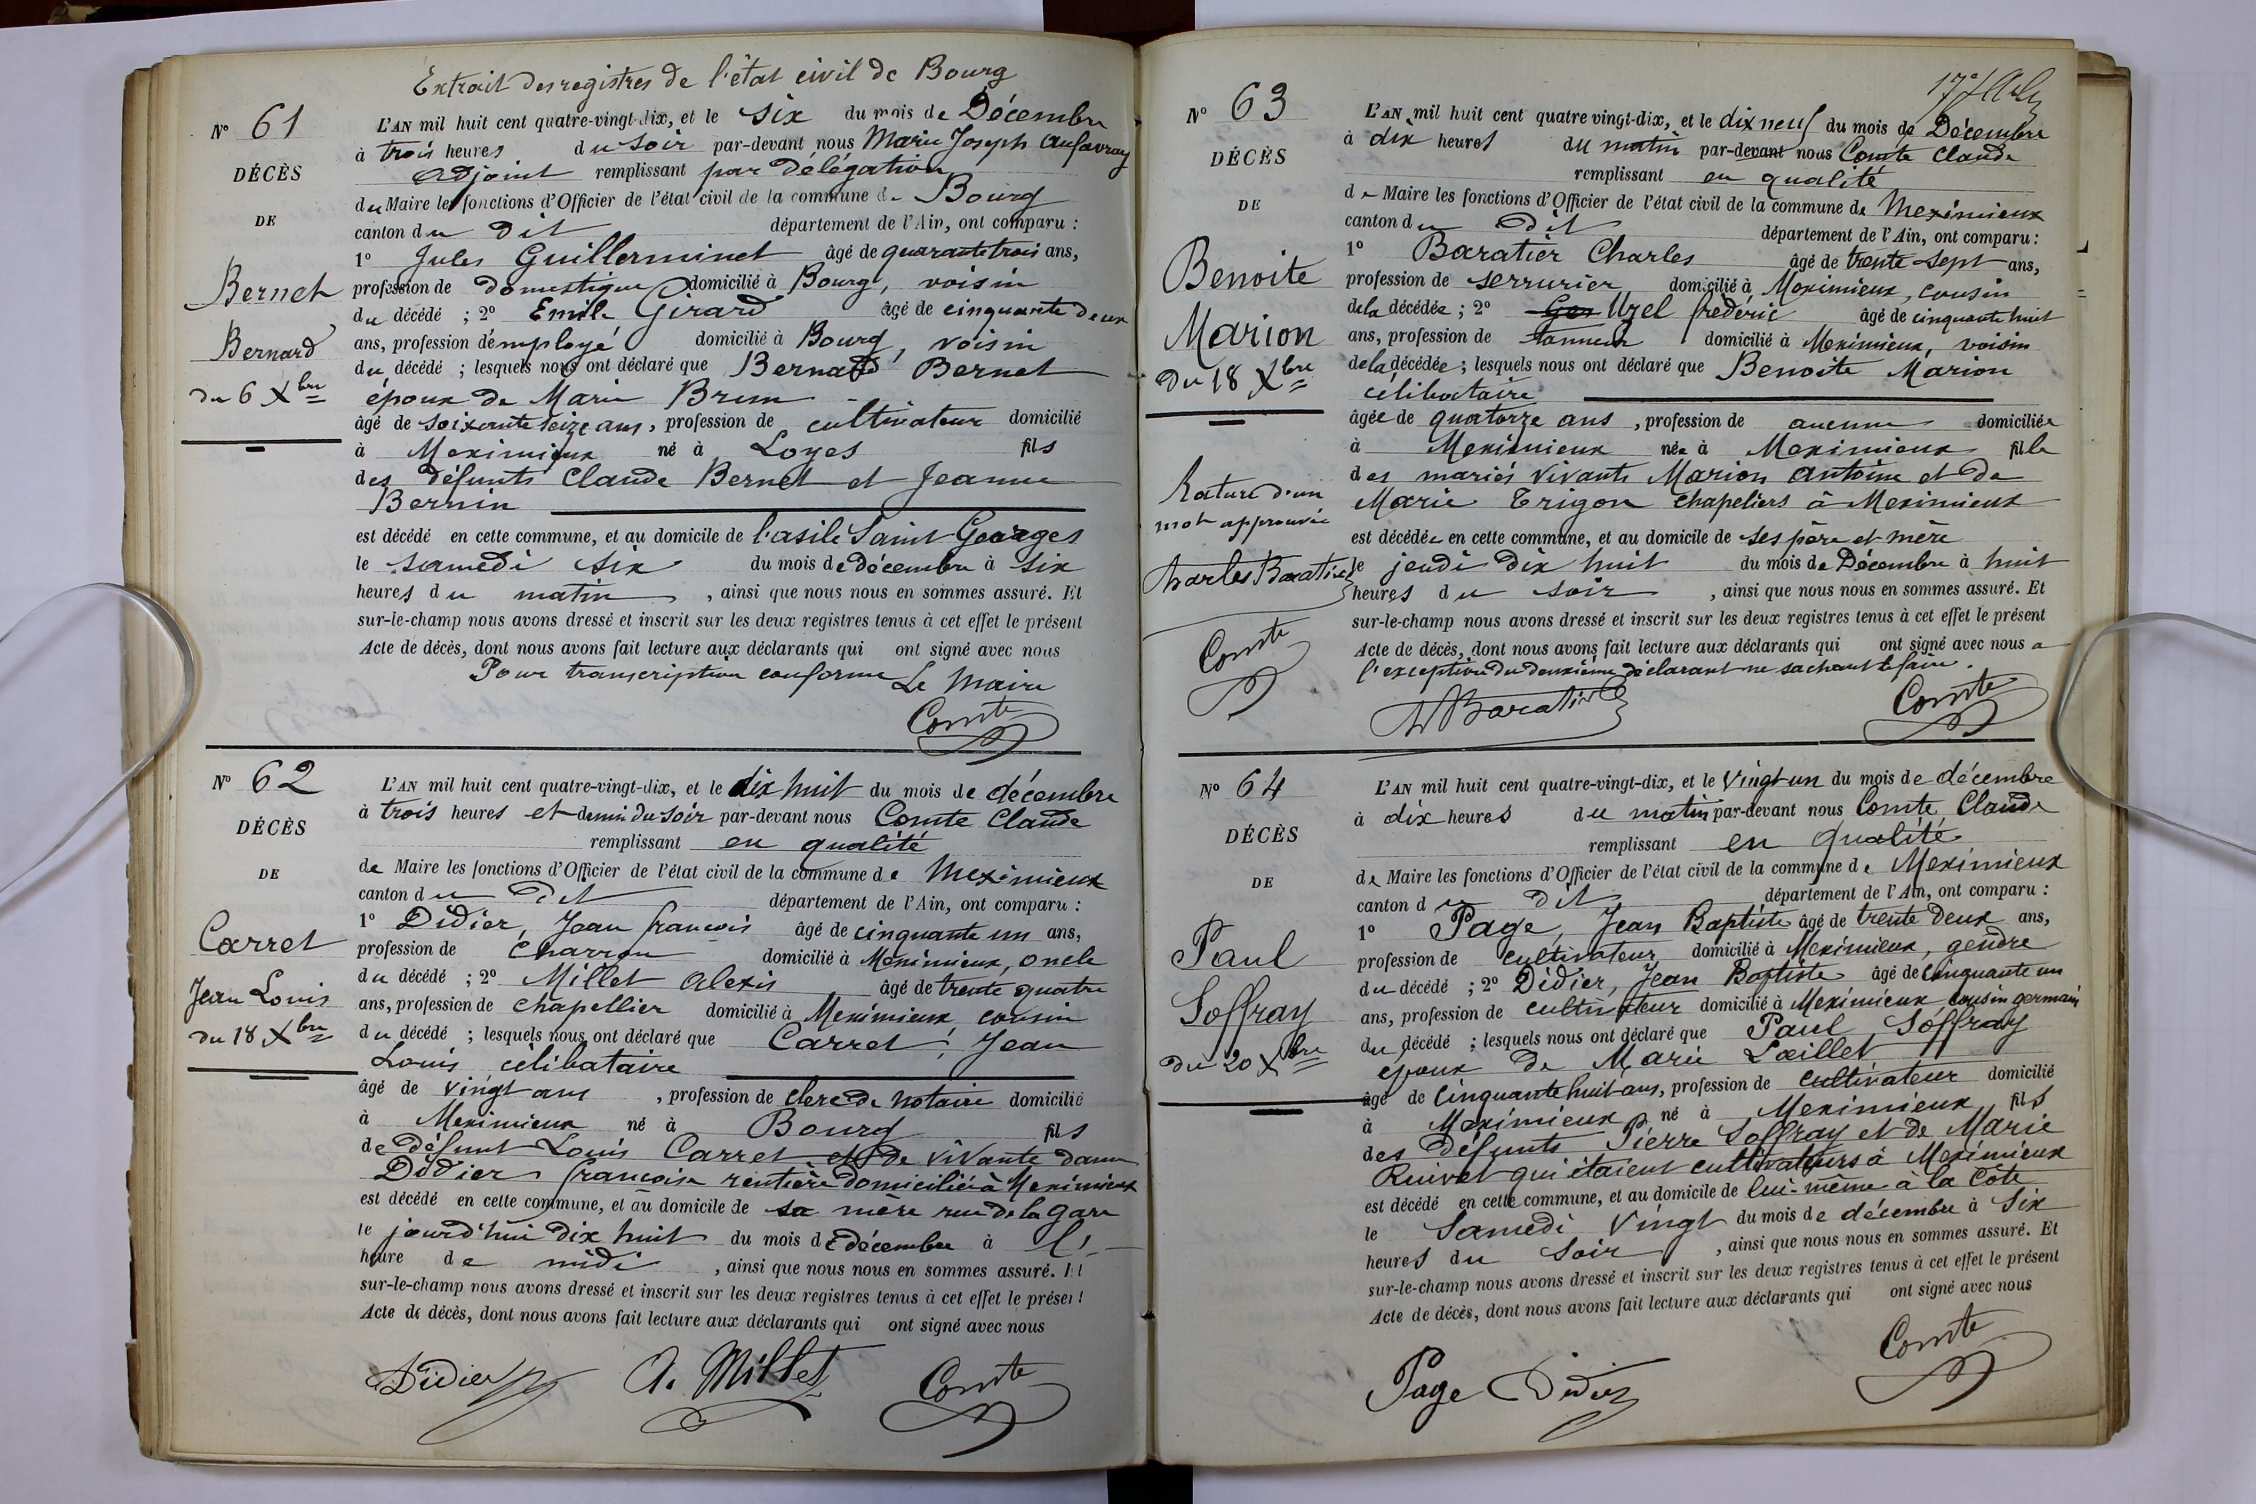 Extrait des registres de l'état civil de Bourg
N° 61
DÉCÈS
DE
Bernet
Bernard
du 6 Xbre
L'AN mil huit cent quatre-vingt-dix, et le six du mois de Décembre
à trois heures du soir par-devant nous Marie Joseph
adjoint remplissant par délégation
du Maire les fonctions d'Officier de l'état civil de la commune de Bourg
canton du dit département de l'Ain, ont comparu :
1° Jules Guillerminet âgé de quarante trois ans,
profession de domestique domicilié à Bourg, voisin
du décédé ; 2° Emile Girard âgé de cinquante deux
ans, profession d'employé domicilié à Bourg, voisin
du décédé ; lesquels nous ont déclaré que Bernard Bernet
époux de Marie Brun
âgé de soixante seize ans, profession de cultivateur domicilié
à Meximieux né à Loyes fils
des défunts Claude Bernet et Jeanne
Bernin
est décédé en cette commune, et au domicile de l'asile Saint Georges
le samedi six du mois de décembre à six
heures du matin, ainsi que nous nous en sommes assuré. Et
sur-le-champ nous avons dressé et inscrit sur les deux registres tenus à cet effet le présent
Acte de décès, dont nous avons fait lecture aux déclarants qui ont signé avec nous
Pour transcription conforme Le Maire
Comte
N° 62
DÉCÈS
DE
Carret
Jean Louis
du 18 Xbre
L'AN mil huit cent quatre-vingt-dix, et le dix huit du mois de décembre
à trois heures et demie du soir par-devant nous Comte Claude
remplissant en qualité
de Maire les fonctions d'Officier de l'état civil de la commune de Meximieux
canton du dit département de l'Ain, ont comparu :
1° Didier, Jean françois âgé de cinquante un ans,
profession de charron domicilié à Meximieux, oncle
du décédé ; 2° Millet Alexis âgé de trente quatre
ans, profession de chapellier domicilié à Meximieux cousin
du décédé ; lesquels nous ont déclaré que Carret, Jean
Louis célibataire
âgé de vingt ans, profession de clerc de notaire domicilié
à Meximieux né à Bourg fils
de défunt Louis Carret et de vivante dame
Didier françoise rentière domiciliée à Meximieux
est décédé en cette commune, et au domicile de sa mère rue de la gare
le jourd'hui dix huit du mois de décembre à l'
heure de midi, ainsi que nous nous en sommes assuré. Et
sur-le-champ nous avons dressé et inscrit sur les deux registres tenus à cet effet le présent
Acte de décès, dont nous avons fait lecture aux déclarants qui ont signé avec nous
Didier A. Millet Comte
N° 63
DÉCÈS
DE
Benoite
Marion
du 18 Xbre
Rature d'un
mot approuvée
Charles Baratier
Comte
L'AN mil huit cent quatre vingt-dix, et le dix neuf du mois de Décembre
à dix heures du matin par-devant nous Comte Claude
remplissant en qualité
de Maire les fonctions d'Officier de l'état civil de la commune de Meximieux
canton du dit département de l'Ain, ont comparu :
1° Baratier Charles âgé de trente sept ans,
profession de serrurier domicilié à Meximieux, cousin
de la décédée ; 2° Uzel frédéric âgé de cinquante huit
ans, profession de tanneur domicilié à Meximieux, voisin
de la décédée ; lesquels nous ont déclaré que Benoite Marion
célibataire
âgée de quatorze ans, profession de aucune domiciliée
à Meximieux née à Meximieux fille
des mariés vivants Marion antoine et de
Marie Trigon chapeliers à Meximieux
est décédée en cette commune, et au domicile de ses père et mère
le jeudi dix huit du mois de Décembre à huit
heures du soir, ainsi que nous nous en sommes assuré. Et
sur-le-champ nous avons dressé et inscrit sur les deux registres tenus à cet effet le présent
Acte de décès, dont nous avons fait lecture aux déclarants qui ont signé avec nous a
l'exception du deuxième déclarant ne sachant le faire.
Baratier Comte
N° 64
DÉCÈS
DE
Paul
Soffray
du 20 Xbre
L'AN mil huit cent quatre-vingt-dix, et le vingt un du mois de décembre
à dix heures du matin par-devant nous Comte Claude
remplissant en qualité
de Maire les fonctions d'Officier de l'état civil de la commune de Meximieux
canton du dit département de l'Ain, ont comparu :
1° Page, Jean Baptiste âgé de trente deux ans,
profession de cultivateur domicilié à Meximieux, gendre
du décédé ; 2° Didier, Jean Baptiste âgé de cinquante un
ans, profession de cultivateur domicilié à Meximieux cousin germain
du décédé ; lesquels nous ont déclaré que Paul Soffray
époux de Marie Læillet
âgé de cinquante huit ans, profession de cultivateur domicilié
à Meximieux né à Meximieux fils
des défunts Pierre Soffray et de Marie
Ruivet qui étaient cultivateurs à Meximieux
est décédé en cette commune, et au domicile de lui-même à la Côte
le Samedi vingt du mois de décembre à six
heures du soir, ainsi que nous nous en sommes assuré. Et
sur-le-champ nous avons dressé et inscrit sur les deux registres tenus à cet effet le présent
Acte de décès, dont nous avons fait lecture aux déclarants qui ont signé avec nous
Page Didier Comte